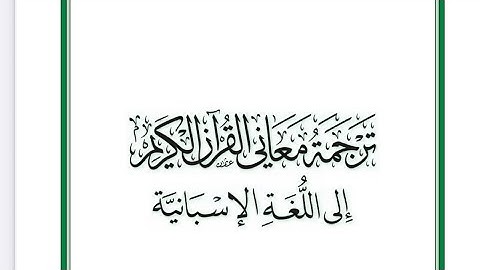 تَرْجَمَةُ مَعَانِي القُرْآنِ الْكَرِيمِ
إِلى اللُّغَةِ الإِسْبَانِيَّة